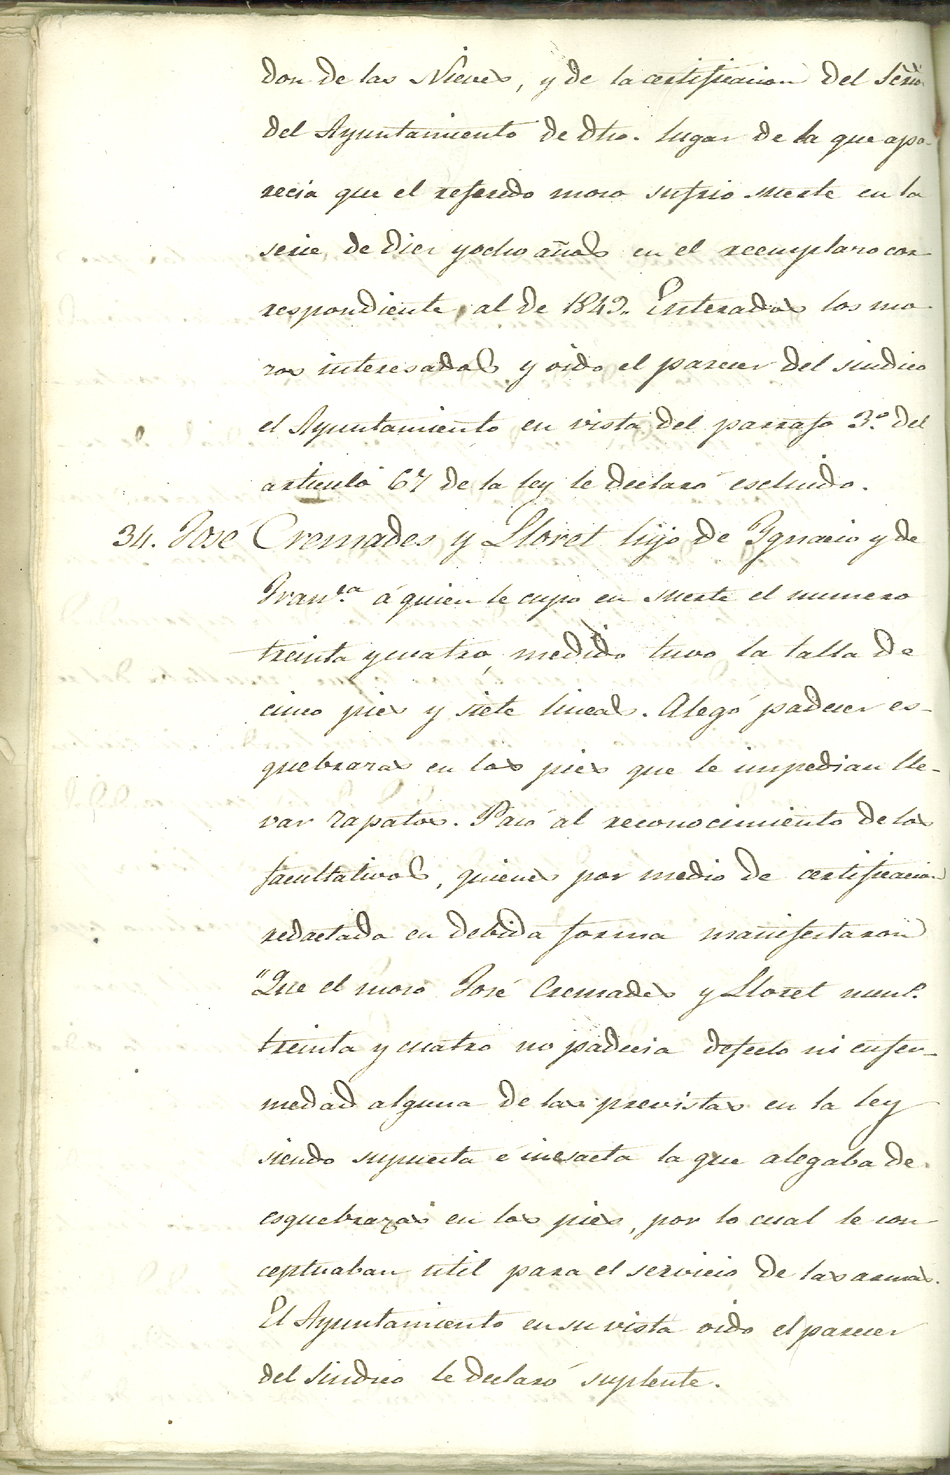 don de las Nieves, y de la certificacion del Secrio
del Ayuntamiento de dho. lugar de la que apa-
recia que el referido moso sufrio suerte en la
serie de diez y ocho años en el reemplazo cor-
respondiente al de 1843. Enterados los mo-
zos interesados y oido el parecer del sindico
el Ayuntamiento en vista del parrafo 3.º del
articulo 67 de la ley le declaró escluido.
34. José Cremades y Lloret hijo de Ignacio y de
Fran.ca á quien le cupo en suerte el numero
treinta y cuatro, medido tuvo la talla de
cinco pies y siete lineas. Alegó padecer es-
quebrazas en los pies que le impedian lle-
var zapatos. Pasó al reconocimiento de los
facultativos, quienes por medio de certificacion
redactada en debida forma manifestaron
"Que el moso José Cremades y Lloret num.º
treinta y cuatro no padecia defecto ni enfer-
medad alguna de las previstas en la ley
siendo supuesta é inesacta la que alegaba de
esquebrazas en los pies, por lo cual le con
ceptuaban util para el servicio de las armas.
El Ayuntamiento en su vista oido el parecer
del Sindico le declaró suplente.